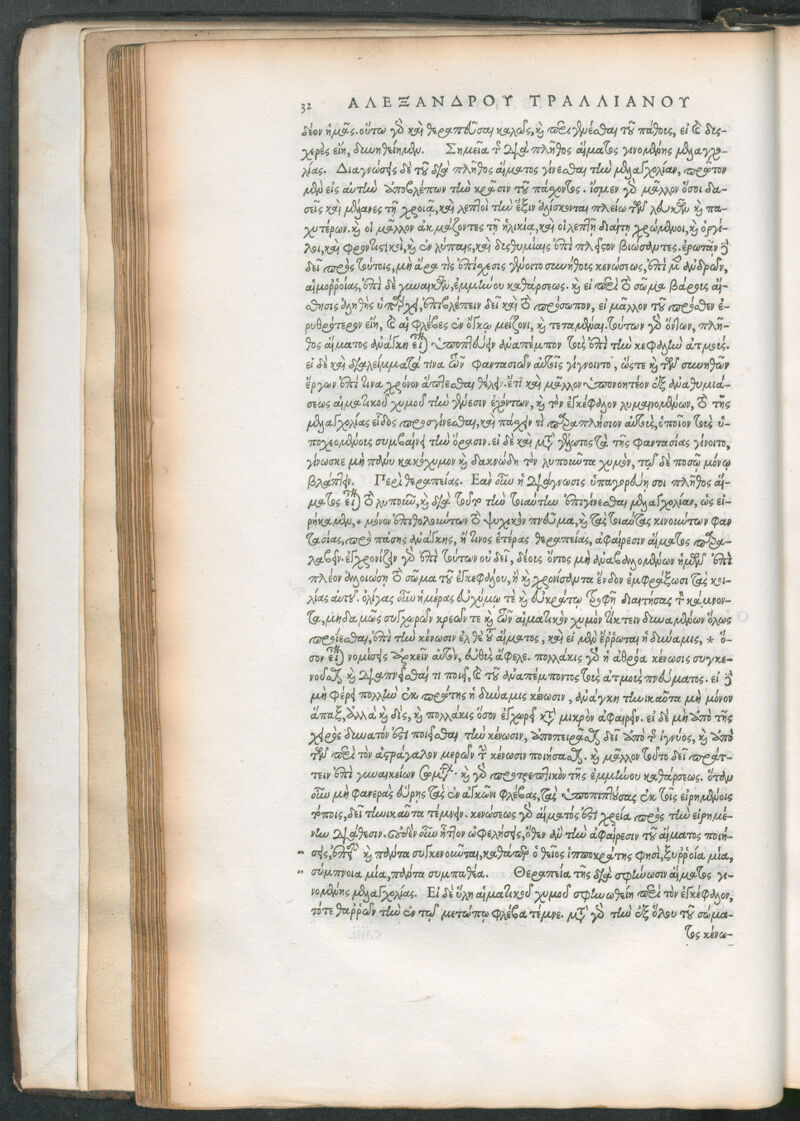 32 ΑΛΕΞΑΝΔΡΟΥ ΤΡΑΛΛΙΑΝΟΥ
δέον ἡμᾶς. οὕτω γὸ καὶ θεραπεῦσαι καλῶς, καὶ περιγενέσθαι τοῦ πάθους, εἰ καὶ δυς-
χερὲς εἴη, δυνηθείημεν. Σημεῖα τοῦ διὰ πλῆθος αἵματος γινομένης μελαγχο-
λίας. Διαγνώσῃ δὲ τοῦ διὰ πλῆθος αἵματος γίνεσθαι τὴν μελαγχολίαν, πρῶτον
μὲν εἰς αὐτὴν ἀποβλέπων τὴν κρᾶσιν τοῦ πάσχοντος. ἴσμεν γὰρ μᾶλλον ὅσοι δα-
σεῖς καὶ μέλανες τῇ χροιᾷ, καὶ λεπτοὶ τὴν ἕξιν ἁλίσκονται πλείω τῶν λευκῶν καὶ πα-
χυτέρων. καὶ οἱ μᾶλλον ἀκμάζοντες τῇ ἡλικίᾳ, καὶ οἱ λεπτῇ διαίτῃ χρώμενοι, καὶ ὀργί-
λοι, καὶ φροντιστικοὶ, καὶ ἐν λύπαις, καὶ δυσθυμίαις ἐπὶ πλεῖστον βιώσαντες. ἐρωτᾶν δὲ
δεῖ πρὸς τούτοις, μὴ ἄρα τις ἐπίσχεσις γένοιτο συνήθους κενώσεως, ἐπὶ μὲν ἀνδρῶν,
αἱμοῤῥοίας, ἐπὶ δὲ γυναικῶν, ἐμμήνου καθάρσεως. καὶ εἰ περὶ τὸ σῶμα βάρους αἴ-
σθησις ἀηθὴς ὑπῆρχεν, ἐπιβλέπειν δεῖ καὶ τὸ πρόσωπον, εἰ μᾶλλον τοῦ πρόσθεν ἐ-
ρυθρότερον εἴη, καὶ αἱ φλέβες ἐν ὄγκῳ μείζονι, καὶ τεταμέναι. τούτων γὰρ ὄντων, πλῆ-
θος αἵματος ἀνάγκη εἶναι ὑποπτεύειν ἀναπέμπον τοὺς ἐπὶ τὴν κεφαλὴν ἀτμούς.
εἰ δὲ καὶ διαλείμματά τινα τῶν φαντασιῶν αὐτοῖς γίγνοιντο, ὥστε καὶ τῶν συνηθῶν
ἔργων ἐπί τινα χρόνον ἅπτεσθαι θέλειν. ἔτι καὶ μᾶλλον ὑπονοητέον ἐξ ἀναθυμιά-
σεως αἱματικοῦ χυμοῦ τὴν γένεσιν ἐχόντων, καὶ τὸν ἐγκέφαλον λυμαινομένων, τὸ τῆς
μελαγχολίας εἶδος προσγίνεσθαι, καὶ πάσχειν τι παραπλήσιον αὐτοῖς, ὁποῖον τοῖς ὑ-
ποχεομένοις συμβαίνει τὴν ὅρασιν. εἰ δὲ καὶ μετὰ γέλωτος τὰ τῆς φαντασίας γίνοιτο,
γίνωσκε μὴ πάνυ κακόχυμον καὶ δακνώδη τὸν λυποῦντα χυμὸν, τῷ δὲ ποσῷ μόνῳ
βλάπτειν. Περὶ θεραπείας. Ἐὰν οὖν ἡ διάγνωσις ὑπαγορεύῃ σοι πλῆθος αἵ-
ματος εἶναι τὸ λυποῦν, καὶ διὰ τοῦτο τὴν τοιαύτην ἐπιγίνεσθαι μελαγχολίαν, ὡς εἰ-
ρήκαμεν, * μόνον ἐπιθολούντων τὸ ψυχικὸν πνεῦμα, καὶ τὰς τοιαύτας κινούντων φαν
τασίας, πρὸ πάσης ἀνάγκης, ἤ τινος ἑτέρας θεραπείας, ἀφαίρεσιν αἵματος παρα-
λαβεῖν. ἐγχρονίζειν γὰρ ἐπὶ τούτων οὐ δεῖ, δέους ὄντος μὴ ἀναβαλλομένων ἡμῶν ἐπὶ
πλέον ἀλλοιώσῃ τὸ σῶμα τοῦ ἐγκεφάλου, ἢ καὶ χρονίσαντα ἔνδον ἐμφράξωσι τὰς κοι-
λίας αὐτοῦ. ὀλίγας οὖν ἡμέρας εὐχύμῳ τε καὶ εὐκράτῳ τροφῇ διαιτήσας τὸν κάμνον-
τα, μηδαμῶς συγχωρῶν κρεῶν τε καὶ τῶν αἱματικὸν χυμὸν τίκτειν δυναμένων ὅλως
προσίεσθαι, ἐπὶ τὴν κένωσιν ἐλθὲ τοῦ αἵματος, καὶ εἰ μὲν ἔῤῥωται ἡ δύναμις, * ὅ-
σον εἶναι νομίσῃς ἀρκεῖν αὐτὸν, εὐθὺς ἄφελε. πολλάκις γὰρ ἡ ἀθρόα κένωσις συγκε-
νοῦσθαι καὶ διαπνεῖσθαί τι ποιεῖ, καὶ τοῦ ἀναπέμποντος τοὺς ἀτμοὺς πνεύματος. εἰ δὲ
μὴ φέρει πολλὴν ἐκ πρώτης ἡ δύναμις κένωσιν, ἀνάγκη τηνικαῦτα μὴ μόνον
ἅπαξ, ἀλλὰ καὶ δὶς, καὶ πολλάκις ὅσον ἐγχωρεῖ κατὰ μικρὸν ἀφαιρεῖν. εἰ δὲ μὴ ἀπὸ τῆς
χειρὸς δυνατόν ἐστι ποιεῖσθαι τὴν κένωσιν, ἀποπειρᾶσθαι δεῖ ἀπὸ τῆς ἰγνύος, καὶ ἀπὸ
τῶν περὶ τὸν ἀστράγαλον μερῶν τὴν κένωσιν ποιήσασθαι. καὶ μᾶλλον τοῦτο δεῖ πράτ-
τειν ἐπὶ γυναικείων σωμάτων. καὶ γὰρ προτρεπτικὸν τῆς ἐμμήνου καθάρσεως. ὅταν
οὖν μὴ φανερὰς εὕρῃς τὰς ἐν ἀγκῶνι φλέβας, τὰς ὑποπιπτούσας ἐκ τοῖς εἰρημένοις
τόποις, δεῖ τηνικαῦτα τέμνειν. κενώσεως γὰρ αἵματός ἐστι χρεία πρὸς τὴν εἰρημέ-
νην διάθεσιν. οὐδὲν οὖν ἧττον ὠφελήσεις, ὅθεν ἂν τὴν ἀφαίρεσιν τοῦ αἵματος ποιή-
„ σῃς, ἐπειδὴ καὶ πάντα συγκενοῦνται, καθάπερ ὁ θεῖος ἱπποκράτης φησὶ, ξυῤῥοία μία,
„ σύμπνοια μία, πάντα συμπαθέα. Θεραπεία τῆς διὰ σφήνωσιν αἵματος γι-
νομένης μελαγχολίας. Εἰ δὲ ὕλη αἱματικοῦ χυμοῦ σφηνωθείη περὶ τὸν ἐγκέφαλον,
τότε θαῤῥῶν τὴν ἐν τῷ μετώπῳ φλέβα τέμνε. μετὰ γὰρ τὴν ἐξ ὅλου τοῦ σώμα-
τος κένω-